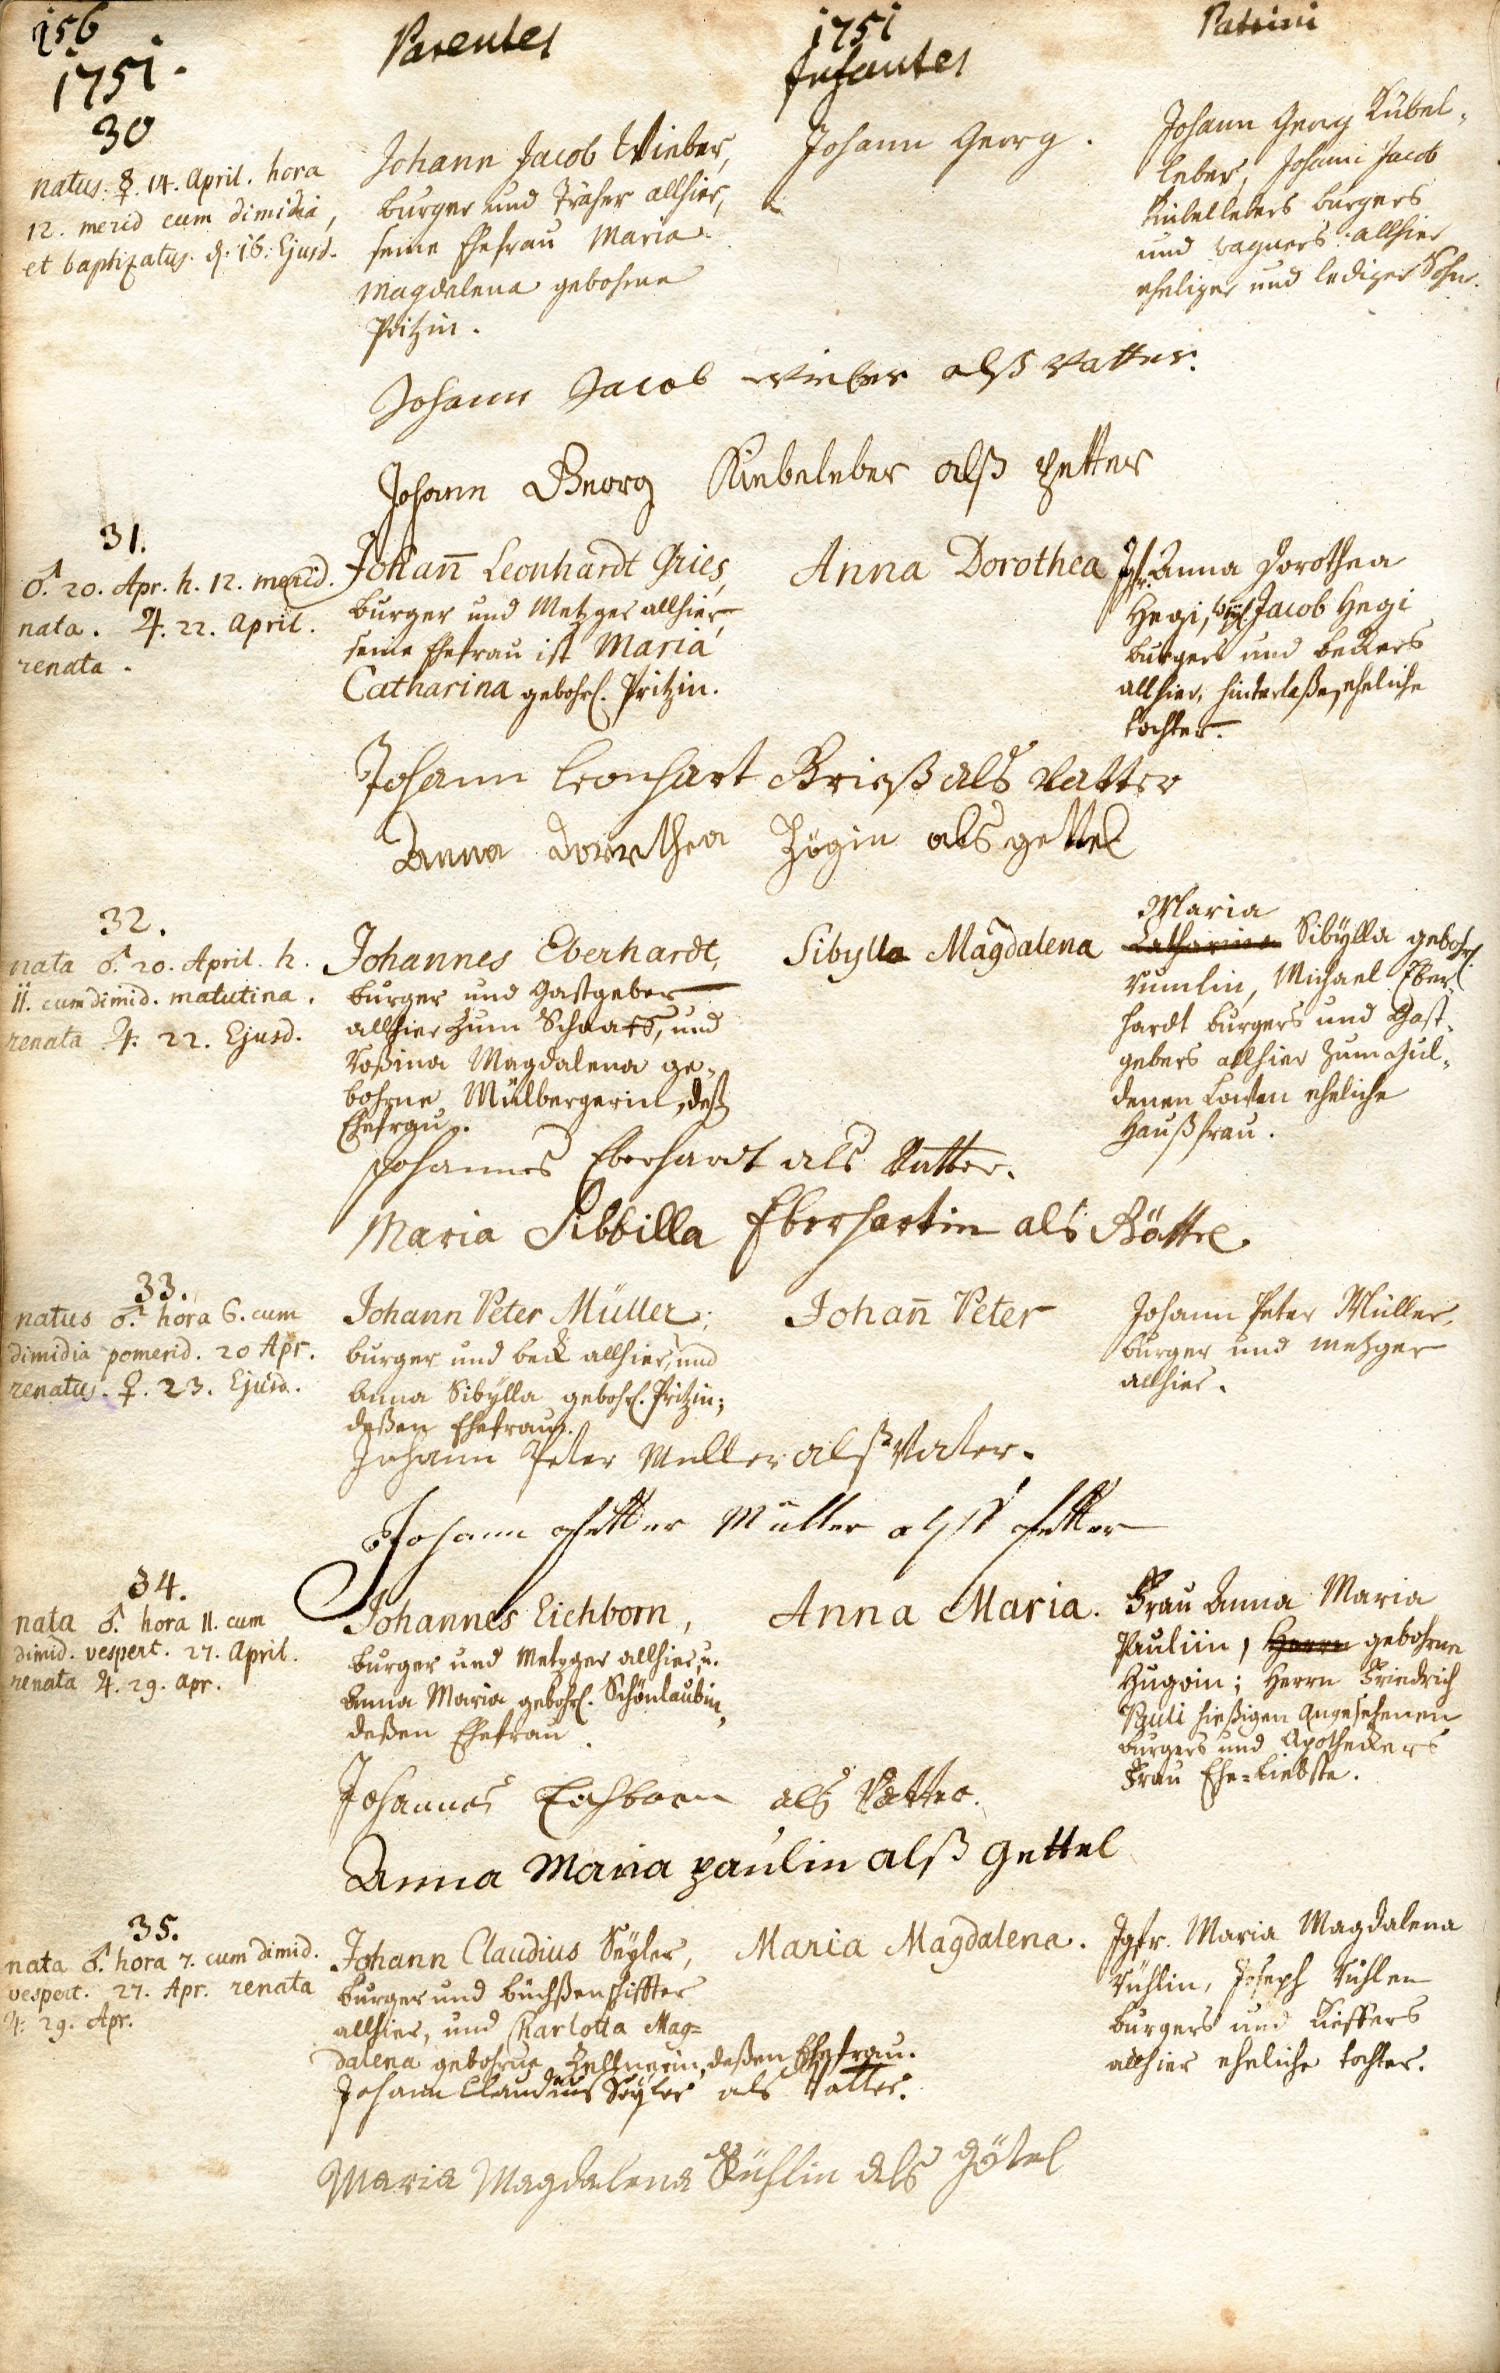 156
1751.
Parentes
1751
Infantes
Patrini
30
natus. ☿. 14. April. hora
12. merid cum dimidia,
et baptizatus. d. 16. Ejusd.
Johann Jacob Wieber,
burger und Träher allhier,
seine Ehefrau Maria
Magdalena gebohrne
Pritzin.
Johann Georg.
Johann Georg Kübel-
leber, Johann Jacob
Kübellebers burgers
und wagners allhier
eheliger und lediger Sohn.
Johann Jacob Wieber alß Vatter.
Johann Georg Kiebeleber alß Petter
31.
♂. 20. Apr. h. 12. merid.
nata. ♃. 22. April.
renata.
Johann̄ Leonhardt Gries,
burger und Metzger allhier,
seine Ehefrau ist Maria
Catharina gebohrl. Pritzin.
Anna Dorothea
Jgfr. Anna Dorothea
Hegi, Jacob Hegi
burgers und beckers
allhier, hinterlaßen eheliche
tochter.
Johann Leonhart Grieß als Vatter
Anna Dorrthea Högin als gettel
32.
nata ♂. 20. April. h.
11. cum dimid. matutina.
renata ♃. 22. Ejusd.
Johannes Eberhardt,
burger und Gastgeber
allhier zum Schaafs, und
Roßina Magdalena ge-
bohrne Mülbergerin, deß
Ehefrau.
Sibylla Magdalena
Maria
Catharina Sibÿlla gebohrl.
Rumlin, Michael Eber-
hardt burgers und Gast-
gebers allhier zum Gul-
denen Löwen eheliche
Haußfrau.
Johannes Eberhardt als Vatter.
Maria Sibbilla Eberhartin als Göttel
33.
natus ♂. hora 6. cum
dimidia pomerid. 20 Apr.
renatus. ♀. 23. Ejusd.
Johann Peter Müller,
burger und beck allhier, und
Anna Sibÿlla gebohrl. Pritzin;
deßen Ehefrau.
Johan̄ Peter
Johann Peter Müller,
burger und metzger
allhier.
Johann Peter Muller alß Vater.
Johann Petter Müller alß Petter
34.
nata ♂. hora 11. cum
dimid. vespert. 27. April.
renata ♃. 29. Apr.
Johannes Eichborn,
burger und Metzger allhier, u.
Anna Maria gebohrl. Schönlaubin,
deßen Ehefrau.
Anna Maria.
Frau Anna Maria
Pauliin, Herrn gebohrne
Hugoin; Herrn Friedrich
Pauli hießigen Angesehenen
burgers und Apotheckers
Frau Ehe-Liebste.
Johannes Eichborn als Vatter.
Anna Maria paulin alß gettel
35.
nata ♂. hora 7. cum dimid.
vespert. 27. Apr. renata
♃. 29. Apr.
Johann Claudius Seÿler,
burger und büchßenschiffter
allhier, und Charlotta Mag-
dalena gebohrne Zellnerin, deßen Ehefrau.
Maria Magdalena.
Jgfr. Maria Magdalena
Rühlin, Joseph Rühlen
burgers und Kieffers
allhier eheliche tochter.
Johann Claudius Seÿler als Vatter.
Maria Magdalena Rühlin als Götel